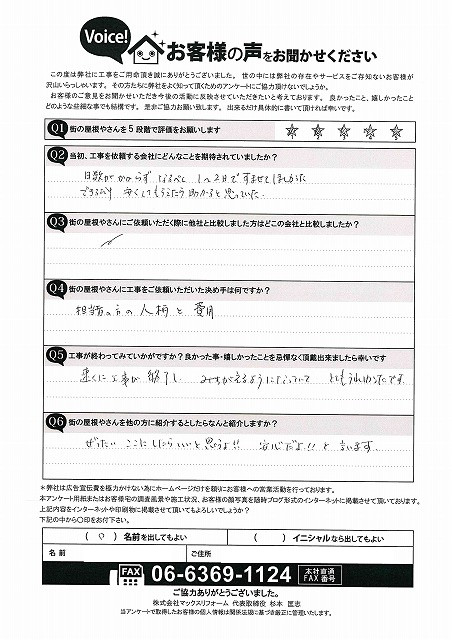 Voice!
お客様の声をお聞かせください
この度は弊社に工事をご用命頂き誠にありがとうございました。世の中には弊社の存在やサービスをご存知ないお客様が
沢山いらっしゃいます。その方たちに弊社をよく知って頂くためのアンケートにご協力頂けないでしょうか。
お客様のご意見をお聞かせいただき今後の活動に反映させていただきたいと考えております。良かったこと、嬉しかったこと
どのような些細な事でも結構です。是非ご協力お願い致します。出来るだけ具体的に書いて頂ければ幸いです。
Q1 街の屋根やさんを5段階で評価をお願いします
Q2 当初、工事を依頼する会社にどんなことを期待されていましたか?
日数がかからず なるべく 1〜2日ですませてほしかった
できるだけ 安くしてもらえたら助かると思っていた.
Q3 街の屋根やさんにご依頼いただく際に他社と比較しました方はどこの会社と比較しましたか?
Q4 街の屋根やさんに工事をご依頼いただいた決め手は何ですか?
担当の方の 人柄 と 費用
Q5 工事が終わってみていかがですか?良かった事・嬉しかったことを忌憚なく頂戴出来ましたら幸いです
速くに工事が終了し みちがえるようになっていて とてもうれしかったです.
Q6 街の屋根やさんを他の方に紹介するとしたらなんと紹介しますか?
ぜったい ここにしたらいいと思うよ!! 安心だよ!! と言います
*弊社は広告宣伝費を極力かけない為にホームページだけを頼りにお客様への営業活動を行っております。
本アンケート用紙またはお客様宅の調査風景や施工状況、お客様の顔写真を随時ブログ形式のインターネットに掲載させて頂いております。
上記内容をインターネットや印刷物に掲載させて頂いてもよろしいでしょうか?
下記の中から〇印をお付下さい。
( 〇 ) 名前を出してもよい ( ) イニシャルなら出してもよい
名前 ご住所
FAX 06-6369-1124 本社直通 FAX番号
ご協力ありがとうございました。
株式会社マックスリフォーム 代表取締役 杉本 匡志
当アンケートで取得したお客様の個人情報は関係法規に基づき厳正に管理いたします。